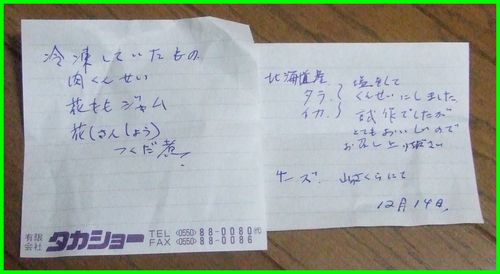 冷凍していたもの
肉くんせい
花もも ジャム
花(さんしょう)
つくだ煮
有限会社 タカショー TEL (0550) 88-0080 ㈹
FAX (0550) 88-0086
北海道産 塩をして
タラ.
イカ.
くんせいにしました
試作でしたが
とてもおいしいので
お召し上り下さい
チーズ. 山荘くらにて
12月14日